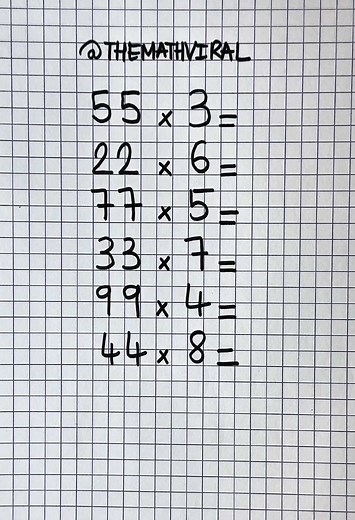 @THEMATHVIRAL
55 × 3 =
22 × 6 =
77 × 5 =
33 × 7 =
99 × 4 =
44 × 8 =